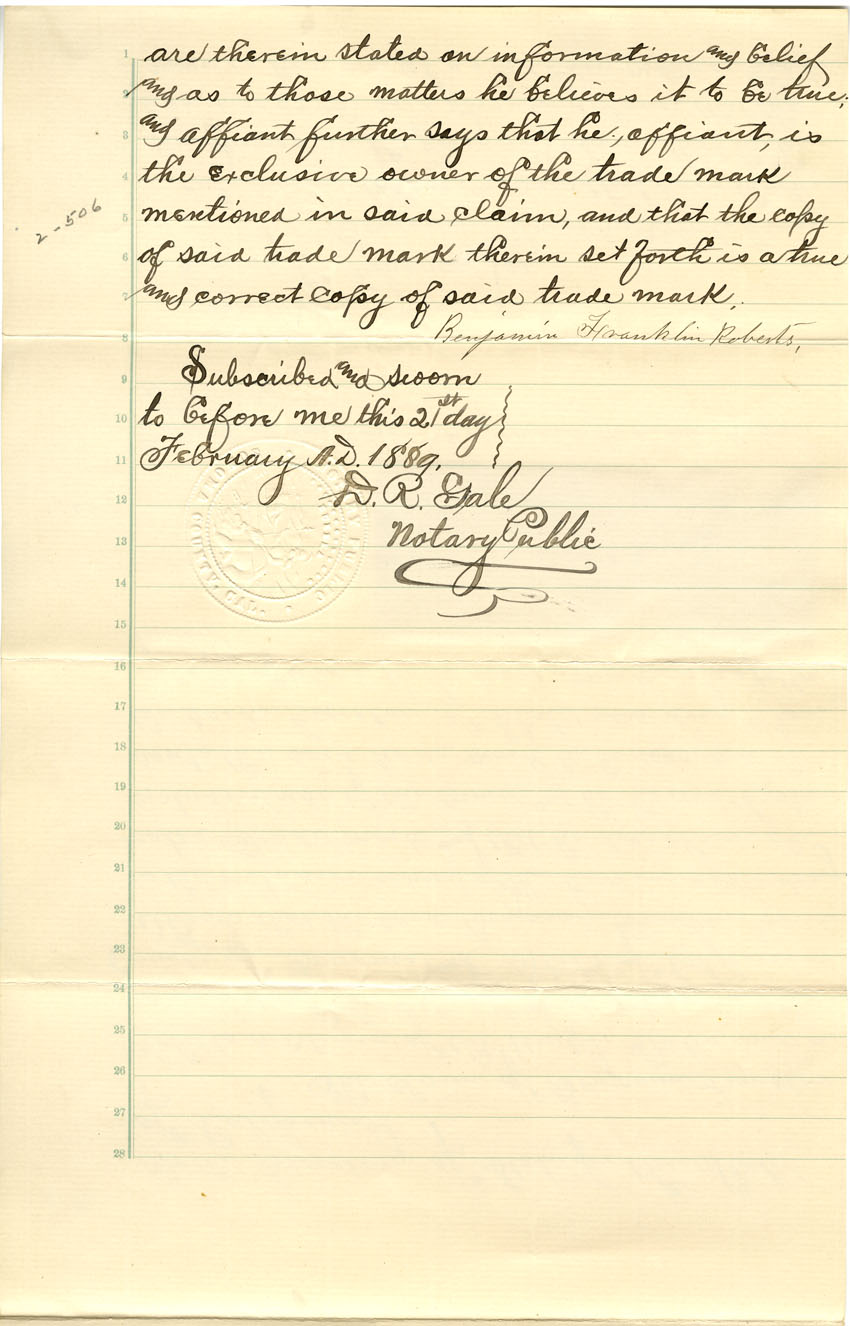 1 are therein stated on information and belief
2 and as to those matters he believes it to be true;
3 and affiant further says that he, affiant, is
4 the exclusive owner of the trade mark
5 mentioned in said claim, and that the copy
2-506
6 of said trade mark therein set forth is a true
7 and correct copy of said trade mark.
8 Benjamin Franklin Roberts,
9 Subscribed and sworn
10 to before me this 21st day
11 February A.D. 1889.
12 D. R. Gale
13 Notary Public
14
15
16
17
18
19
20
21
22
23
24
25
26
27
28
COUNTY, CAL.